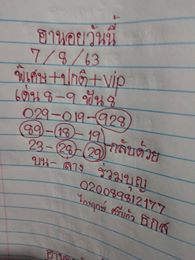 ฮานอยวันนี้
7/8/63
พิเศษ+ปกติ+vip
เด่น 8-9 ฟัน 8
029-019-928
89-18-19
23-28-29 กลับด้วย
บน-ล่าง ร่วมบุญ
020089812177
ธกส